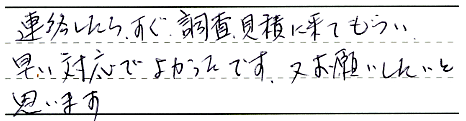 連絡したら、すぐ調査見積に来てもらい
早い対応でよかったです。又お願いしたいと
思います